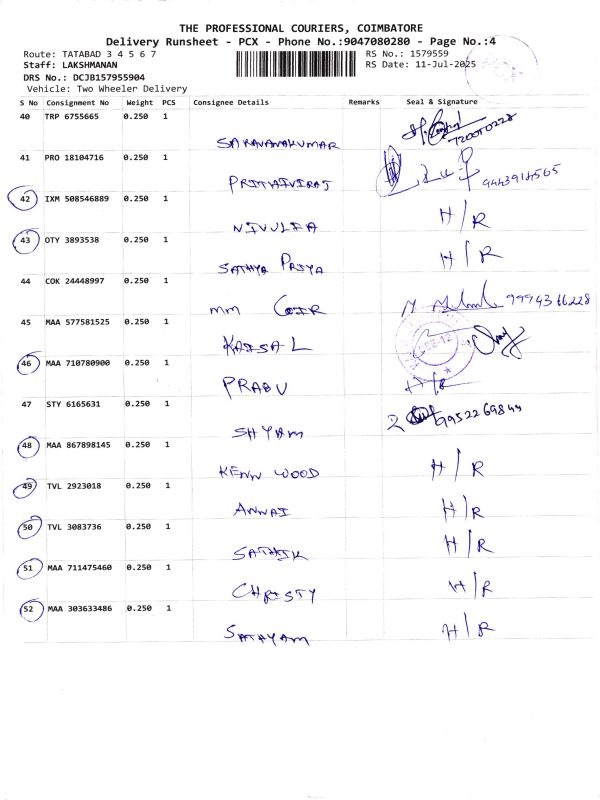 THE PROFESSIONAL COURIERS, COIMBATORE
Delivery Runsheet - PCX - Phone No.:9047080280 - Page No.:4
Route: TATABAD 3 4 5 6 7 RS No.: 1579559
Staff: LAKSHMANAN RS Date: 11-Jul-2025
DRS No.: DCJB157955904
Vehicle: Two Wheeler Delivery
S No Consignment No Weight PCS Consignee Details Remarks Seal & Signature
40 TRP 6755665 0.250 1
SARAVANAKUMAR 7200T0228
41 PRO 18104716 0.250 1
PRITHIVIRAJ 9443914565
42 IXM 508546889 0.250 1 H/R
NIVULIA
43 OTY 3893538 0.250 1 H/R
SATHYA PRIYA
44 COK 24448997 0.250 1
mm COIR 9994366228
45 MAA 577581525 0.250 1
KAISAL
46 MAA 710780900 0.250 1 H/R
PRABU
47 STY 6165631 0.250 1
SHYAM
48 MAA 867898145 0.250 1
KENN WOOD H/R
49 TVL 2923018 0.250 1
ANNAI H/R
50 TVL 3083736 0.250 1 H/R
SATHIK
51 MAA 711475460 0.250 1 H/R
CHRISTY
52 MAA 303633486 0.250 1 H/R
SATAYAM